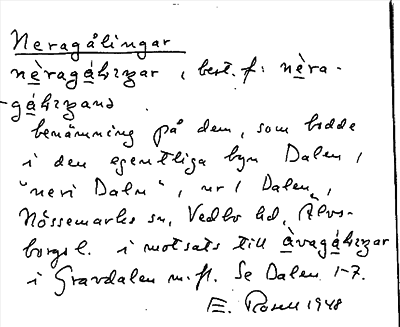 Neragålingar
nèragáliŋar, best. f: nèra-
gáliŋana.
benämning på dem, som bodde
i den egentliga byn Dalen,
"neri Daln", nr 1 Dalen,
Nössemarks sn, Vedbo hd, Älvs-
borgs l. i motsats till àvagáliŋar
i Gravdalen m. fl. Se Dalen 1-7.
E. Rosell 1948